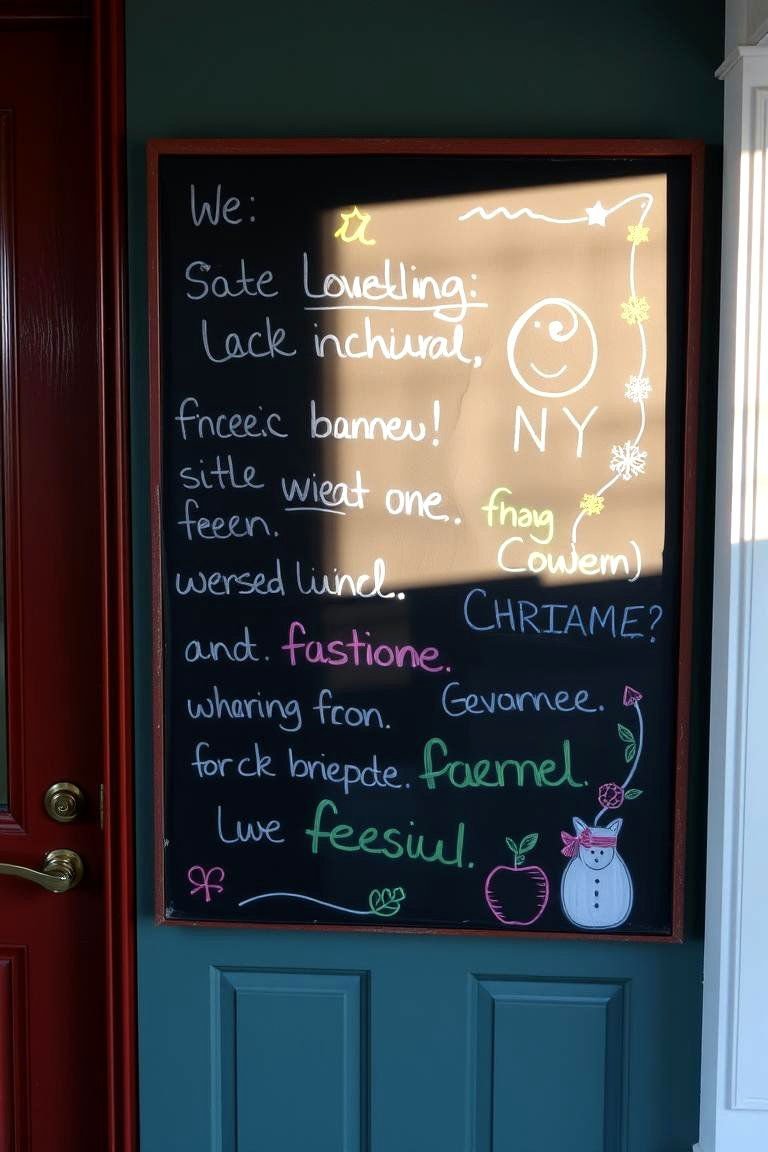 We:
Sate Louetling:
Lack inchiural,
NY
fnceeic banneu!
sitle wieat one.
feeen.
fhaig
Cowern)
wersed liuncl.
CHRIAME?
and. fastione.
wharing fcon. Gevarnee.
forck briepcte. faernel.
Lwe feesiul.